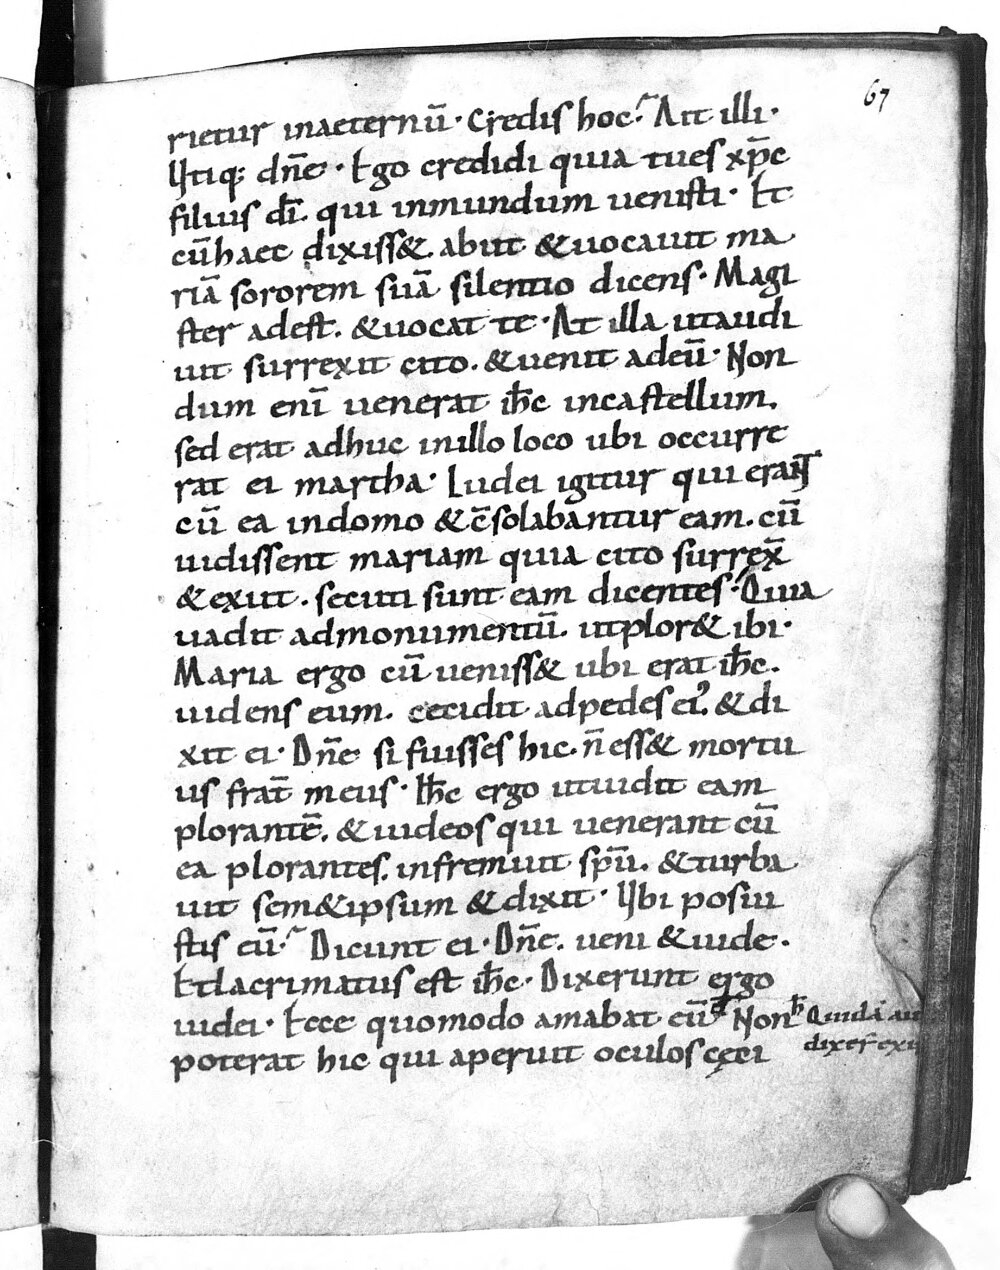 67
rietur inaeternū · Credis hoc · Ait illi ·
Utiq; dn̄e · Ego credidi quia tues xp̄c
filius dī. qui inmundum uenisti · Et
cūhaec dixiss&. abiit &uocauit ma
riā sororem suā silentio dicens · Magi
ster adest. &uocat te · At illa utaudi
uit surrexit cito. &uenit adeū · Non
dum enī uenerat ih̄c incastellum.
sed erat adhuc inillo loco ubi occurre
rat ei martha · Iudei igitur qui erant
cū ea indomo &c̄solabantur eam. cū
uidissent mariam quia cito surrex̄
&exiit. secuti sunt eam dicentes · Quia
uadit admonumentū. utplor& ibi ·
Maria ergo cū ueniss& ubi erat ih̄c.
uidens eum. cecidit adpedes ei'. &di
xit ei · Dn̄e si fuisses hic. n̄ ess& mortu
us frat̄ meus · Ih̄c ergo utuidit eam
plorantē. &iudeos qui uenerant cū
ea plorantes. infremuit spū. &turba
uit sem&ipsum &dixit · Ubi posui
stis eū · Dicunt ei · Dn̄e. ueni &uide.
Etlacrimatus est ih̄c · Dixerunt ergo
iudei · Ecce quomodo amabat eū Non
Quidā au
dixer̄ exi
poterat hic qui aperuit oculos cęci